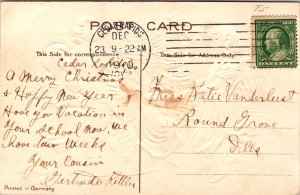 25-
POST CARD
CEDAR RAPIDS
DEC
23 9-22AM
1910
This Side for correspondence.
This Side for Address Only.
Cedar Rapids,
A Merry Christmas
& Happy New Year
Have you Vacation in
Your School now. we
have two Weeks
Your Cousin
Gertrude
Miss Katie Vanderlust
Round Grove
Ills
Printed in Germany